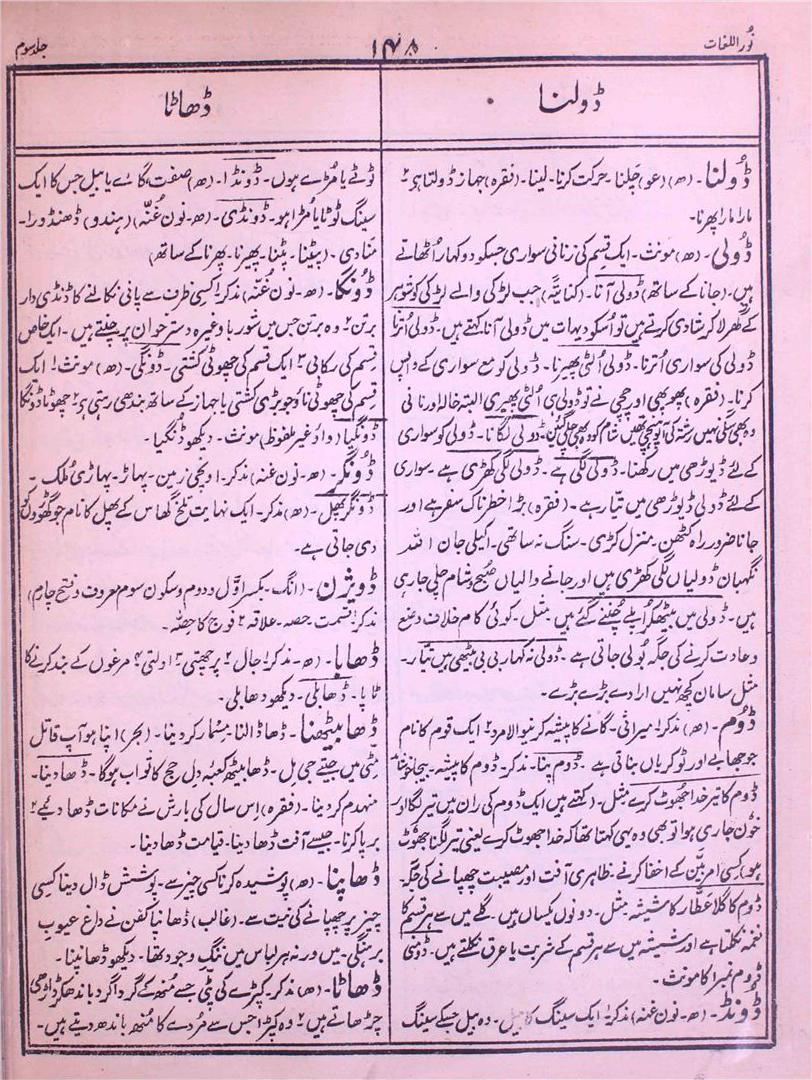 نُور اللغات
۱۴۸
جلد سوم
ڈولنا
ڈھاٹا
ڈُولنا۔ (ھ) (عو) چلنا۔ حرکت کرنا۔ لینا۔ (فقرہ) جہاز ڈولتا ہی ۲
مارا مارا پھرنا۔
ڈُولی۔ (ھ) مونث۔ ایک قسم کی زنانی سواری جسکو دو کہار اُٹھاتے
ہیں۔ (جانا کے ساتھ) ڈولی آنا۔ (کنایۃً) جب لڑکی والے لڑکی کو شوہر
کے گھر لا کر شادی کرتے ہیں تو اُسکو دیہات میں ڈولی آنا کہتے ہیں۔ ڈولی اُترنا
ڈولی کی سواری اُترنا۔ ڈولی اُلٹی پھیرنا۔ ڈولی کو مع سواری کے واپس
کرنا۔ (فقرہ) پھوپھی اور چچی نے تو ڈولی ہی اُلٹی پھیری البتہ خالہ اور نانی
وہ بھی سگی نہیں رشتہ کی آ پہنچی تھیں شام کو وہ بھی چلی گئیں۔ ڈولی لگانا۔ ڈولی کو سواری
کے لئے ڈیوڑھی میں رکھنا۔ ڈولی لگی ہے۔ ڈولی لگی کھڑی ہے۔ سواری
کے لئے ڈولی ڈیوڑھی میں تیار ہے۔ (فقرہ) بڑا خطرناک سفر ہے اور
جانا ضرور راہ کٹھن۔ منزل کڑی۔ سنگ نہ ساتھی۔ اکیلی جان اللہ
نگہبان ڈولیاں لگی کھڑی ہیں اور جانے والیاں صبح و شام چلی جا رہی
ہیں۔ ڈولی میں بیٹھکر اُپلے چُننے گئے ہیں۔ مثل۔ کوئی کام خلاف وضع
و عادت کرنے کی جگہ بُولی جاتی ہے۔ ڈولی نہ کہار بی بی بیٹھی ہیں تیار۔
مثل سامان کچھ نہیں ارادے بڑے بڑے۔
ڈُوم۔ (ھ) مذکر۔ میراثی۔ گانے کا پیشہ کرنیوالا مرد ۲ ایک قوم کا نام
جو چھاجے اور ٹوکریاں بناتی ہے۔ ڈوم پنا۔ مذکر۔ ڈوم کا پیشہ۔
ڈوم کا تیر خدا جھوٹ کرے مثل۔ (کہتے ہیں ایک ڈوم کی ران میں تیر لگا اور
خون جاری ہوا تو بھی وہ یہی کہتا تھا کہ خدا جھوٹ کرے یعنی تیر لگنا جھوٹ
ہو) کسی امر بیّن کے اخفا کرنے۔ ظاہری آفت اور مصیبت چھپانے کی جگہ۔
ڈوم کا گلا عطّار کا شیشہ مثل۔ دونوں یکساں ہیں۔ گلے میں سے ہر قسم کا
نغمہ نکلتا ہے اور شیشہ میں سے ہر قسم کے شربت یا عرق نکلتے ہیں۔ ڈومنی
ڈوم نمبر ا کا مونث۔
ڈُونڈ۔ (ھ۔ نون غنہ) مذکر ۱ ایک سینگ کا بیل۔ وہ بیل جسکے سینگ
ٹوٹے یا مُڑے ہوں۔ ڈونڈا۔ (ھ) صفت گائے یا بیل جس کا ایک
سینگ ٹوٹا یا مُڑا ہو۔ ڈونڈی۔ (ھ۔ نون غُنّہ) (ہندو) ڈھنڈورا۔
منادی۔ (پیٹنا۔ پٹنا۔ پھیرنا۔ پھرنا کے ساتھ)
ڈُونگا۔ (ھ۔ نون غُنّہ) مذکر ۱ کسی ظرف سے پانی نکالنے کا ڈنڈی دار
برتن ۲ وہ برتن جس میں شوربا وغیرہ دسترخوان پر چلتے ہیں۔ ایک خاص
قسم کی رکابی ۳ ایک قسم کی چھوٹی کشتی۔ ڈونگی۔ (ھ) مونث ۱ ایک
قسم کی چھوٹی ناؤ جو بڑی کشتی یا جہاز کے ساتھ بندھی رہتی ہی ۲ چھوٹا ڈونگا
ڈونگیا (واؤ غیر ملفوظ) مونث۔ دیکھو ڈنگیا۔
ڈُونگر۔ (ھ۔ نون غنہ) مذکر۔ اونچی زمین۔ پہاڑ۔ پہاڑی مُلک۔
ڈونگر پھل۔ (ھ) مذکر۔ ایک نہایت تلخ گھاس کے پھل کا نام جو گھوڑوں کو
دی جاتی ہے۔
ڈویژن۔ (انگ۔ بکسر اوّل و دوم و سکون سوم معروف و فتح چارم)
مذکر ۱ قسمت حصّہ۔ علاقہ ۲ فوج کا حصّہ۔
ڈھابا۔ (ھ) مذکر ۱ جال ۲ پرچھتی ۳ اولتی ۴ مرغوں کے بند کرنے کا
ٹاپا۔ ڈھابلی۔ دیکھو دھابلی۔
ڈھا بیٹھنا۔ ڈھا ڈالنا۔ مِسمار کر دینا۔ (بحر) اپنا ہو آپ قاتل
مٹی میں جیتے جی مل۔ ڈھا بیٹھ کعبۂ دل حج کا ثواب ہوگا۔ ڈھا دینا۔
منہدم کر دینا۔ (فقرہ) اِس سال کی بارش نے مکانات ڈھا دیئے ۲
برپا کرنا۔ جیسے آفت ڈھا دینا۔ قیامت ڈھا دینا۔
ڈھاپنا۔ (ھ) پوشیدہ کرنا کسی چیز سے۔ پوشش ڈال دینا کسی
چیز پر چھپانے کی نیت سے۔ (غالب) ڈھانپا کفن نے داغ عیوبِ
برہنگی۔ میں ورنہ ہر لباس میں ننگِ وجود تھا۔ دیکھو ڈھانپنا۔
ڈھاٹا۔ (ھ) مذکر۔ کپڑے کی پٹّی جسے مُنھ کے گرداگرد باندھکر ڈاڑھی
چڑھاتے ہیں ۲ وہ کپڑا جس سے مُردے کا مُنھ باندھ دیتے ہیں۔